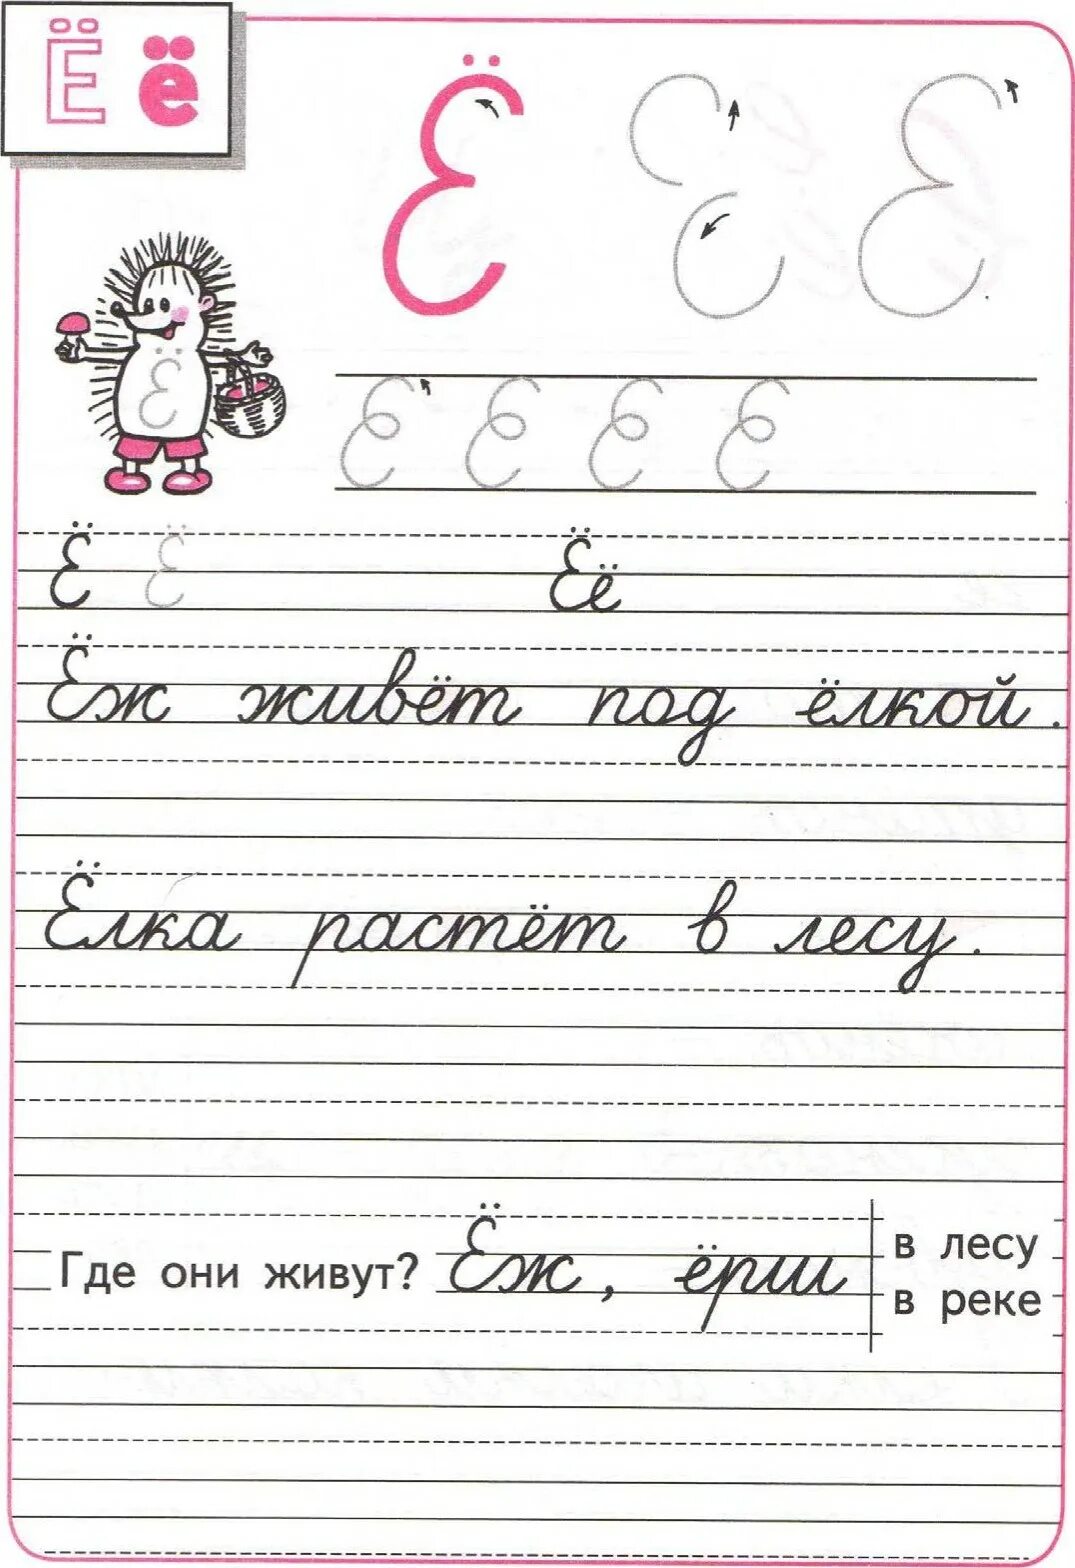 Ё ё
Ё
Ё
Ё Ё Ёё
Ёж живёт под ёлкой.
Ёлка растёт в лесу.
Где они живут? Ёж, ёрш
в лесу
в реке